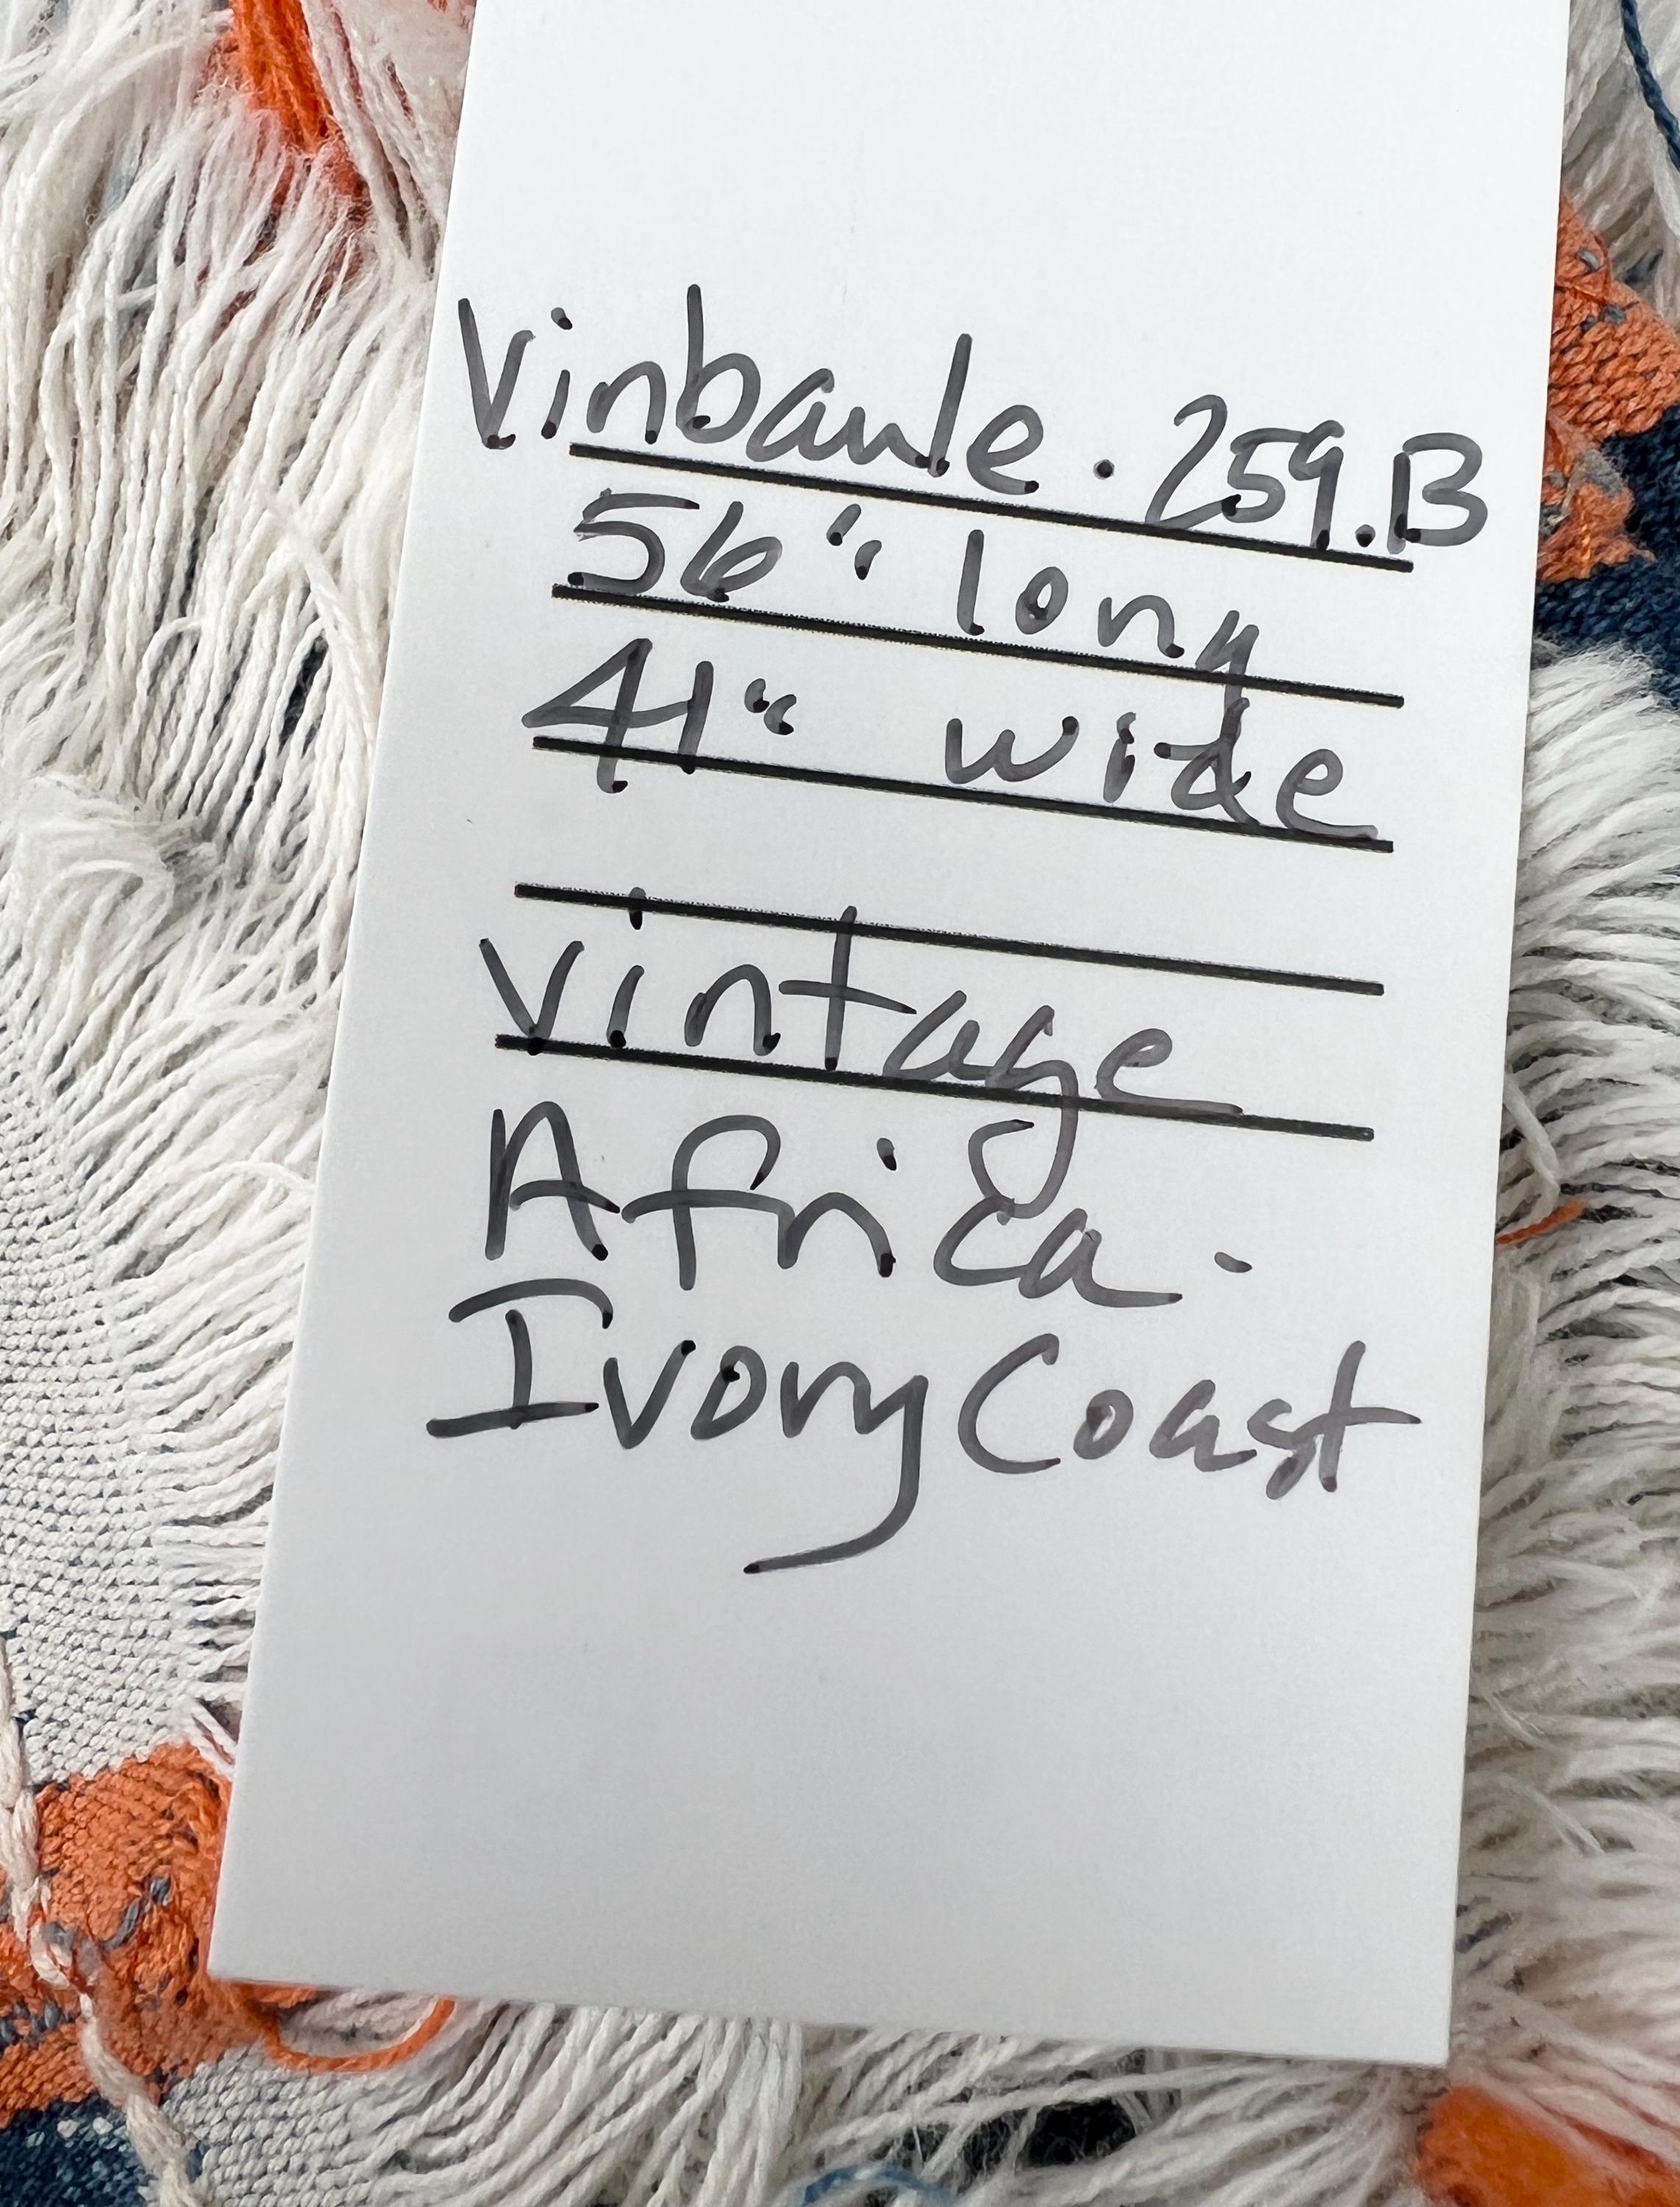 Vinbaule. 259.B
56" long
41" wide
vintage
Africa -
Ivory Coast